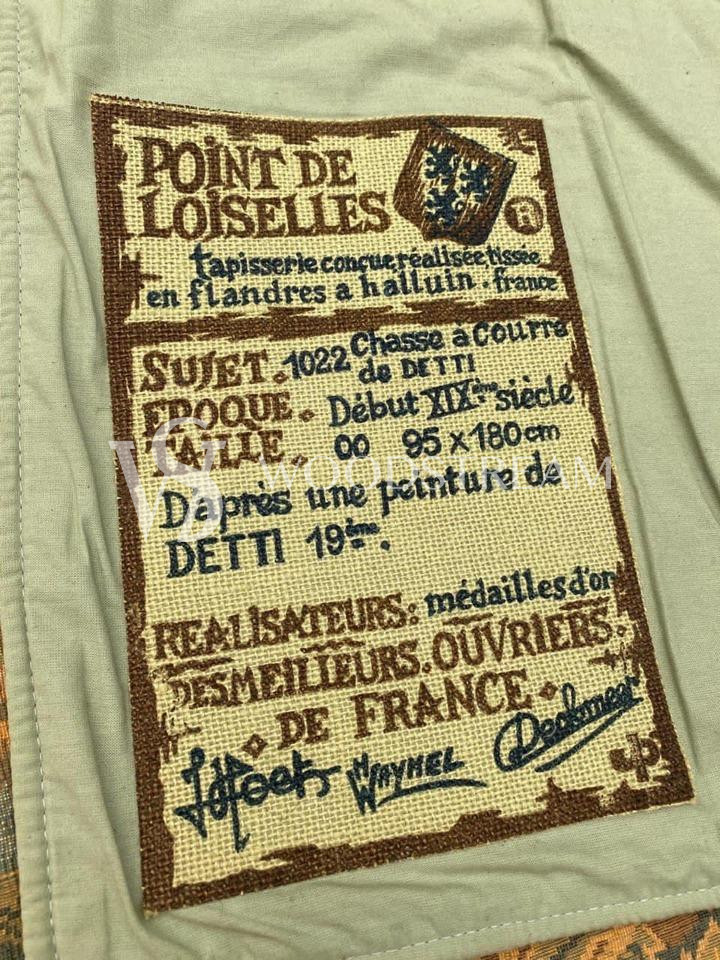 POINT DE
LOISELLES
R
tapisserie conçue, réalisée, tissée
en flandres a halluin . france
SUJET . 1022 Chasse à Courre
de DETTI
EPOQUE . Début XIXème siècle
TAILLE . 00 95 x 180 cm
D'après une peinture de
DETTI 19ème .
REALISATEURS: médailles d'or
DES MEILLEURS . OUVRIERS .
DE FRANCE
WAYMEL Deckmeer